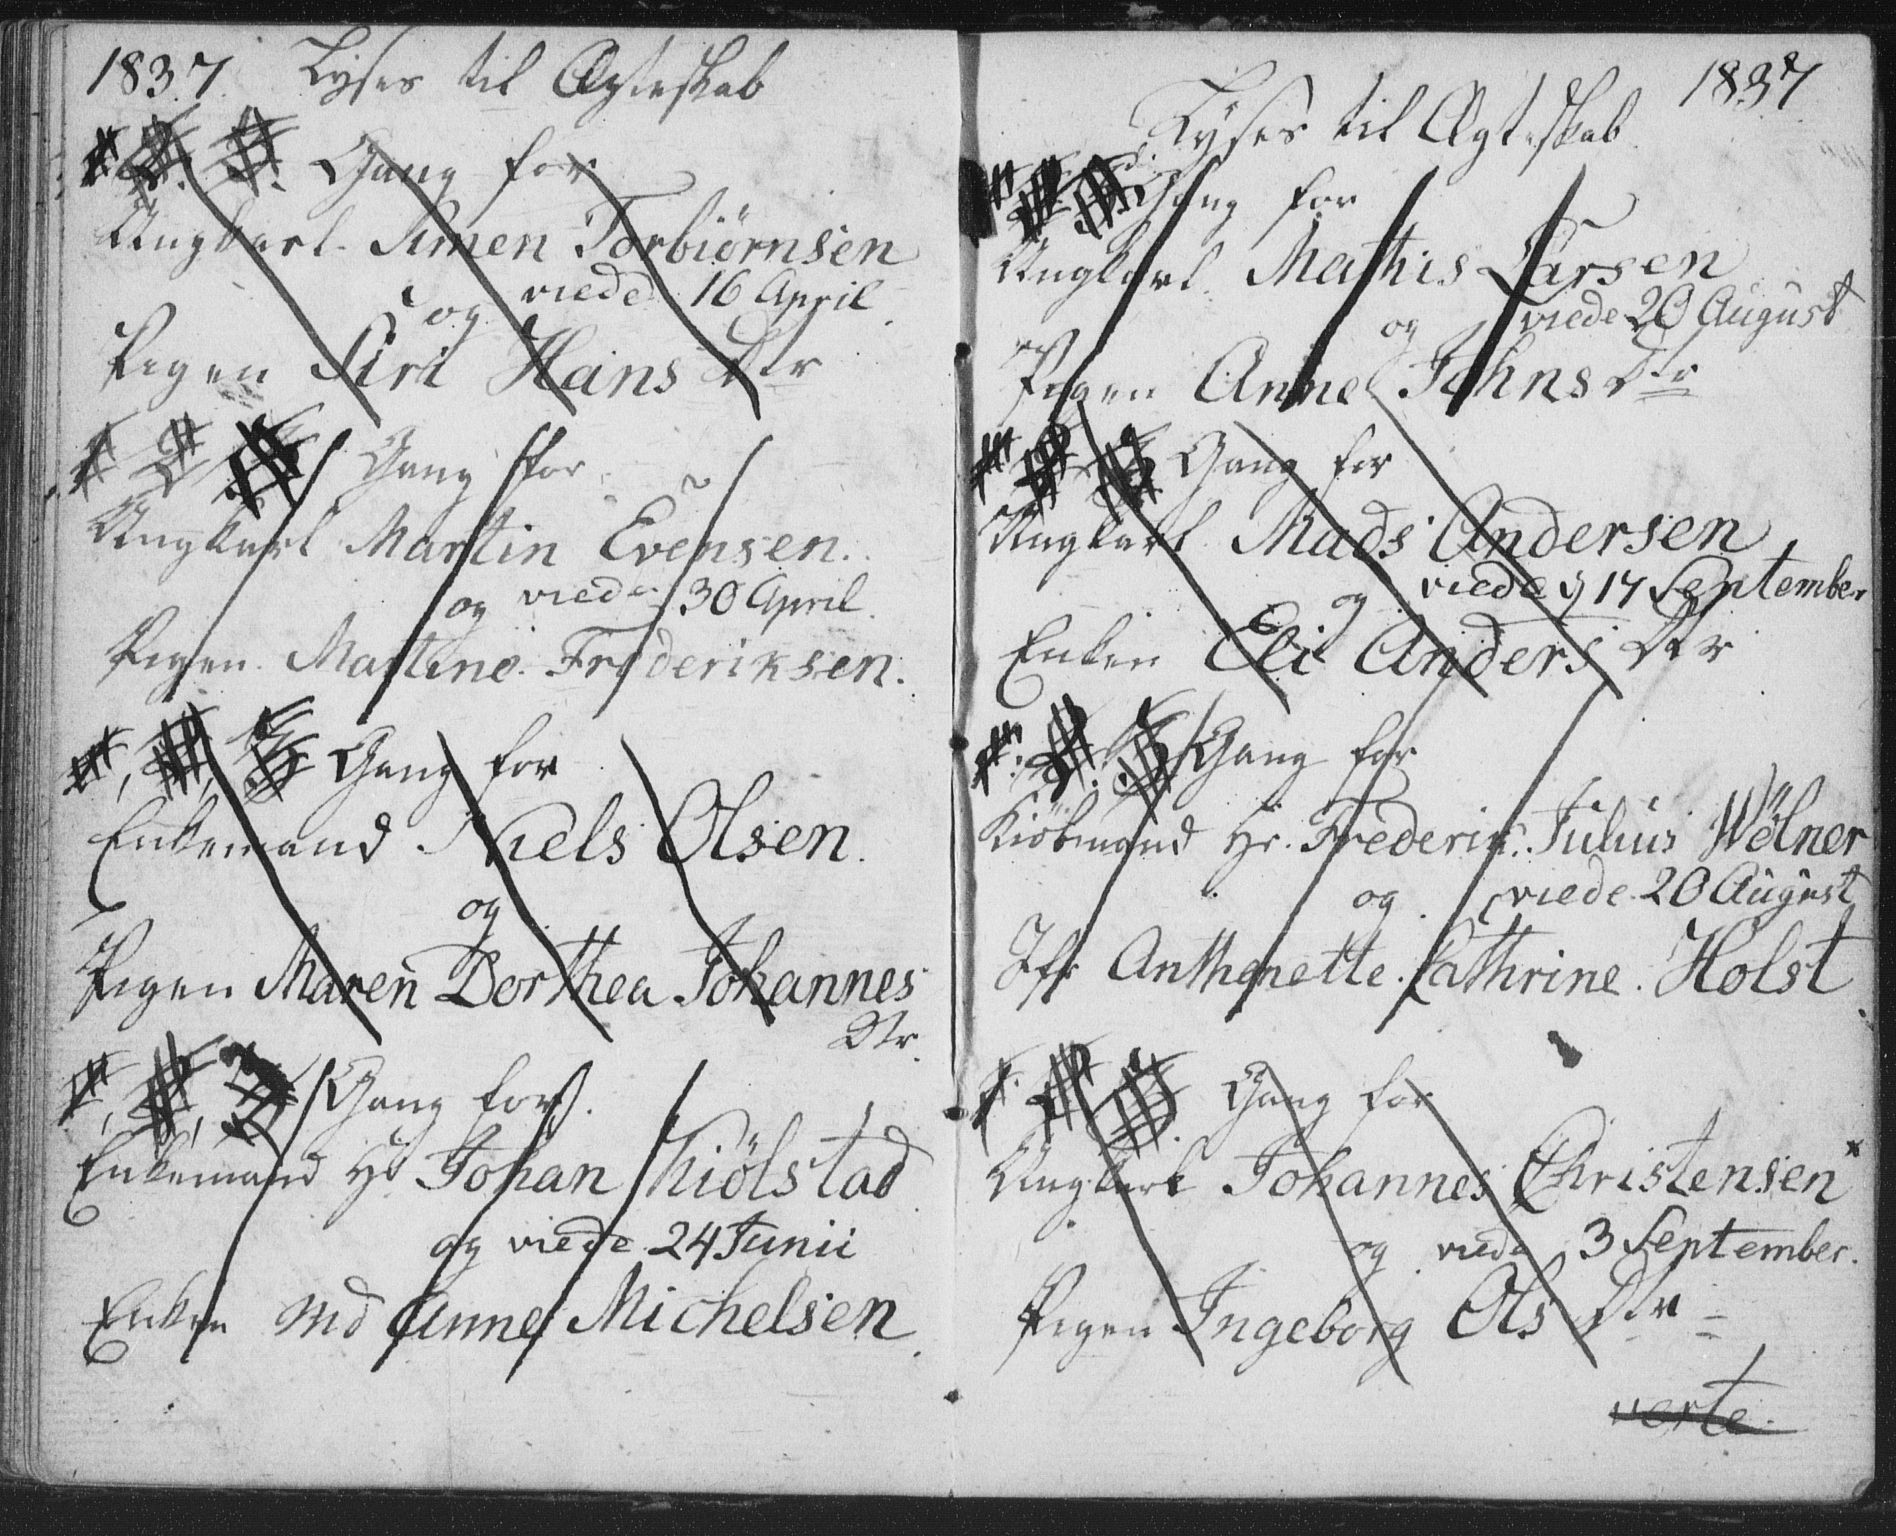 1837. Lyses til Ægteskab
1. 2. 3. Gang for
Ungkarl Simen Torbiörnsen
og viede 16 April
Pigen Siri Hans Dtr
1 2 3 Gang for
Ungkarl Martin Evensen.
og viede 30 April.
Pigen Martine Frederiksen.
1, 2, 3 Gang for
Enkemand Niels Olsen.
og
Pigen Maren Dorthea Johannes
Dtr.
1, 2, 3 Gang for
Enkemand Hr Johan Kiölstad
og viede 24 Junii
Enken Md Anne Michelsen.
1837
Lyses til Ægteskab
Gang for
Ungkarl Mathis Larsen
og viede 20 August
Pigen Anne Johns Dtr
1 2 3 Gang for
Ungkarl Mads Andersen
og viede d 17 September
Enken Eli Anders Dtr
1. 2. 3 Gang for
Kiöbmand Hr. Frederik Julius Wölner
og viede 20 August
Jfr Anthonette Cathrine Holst
1. 2. 3. Gang for
Ungkarl Johannes Christensen
og viede 3 September.
Pigen Ingeborg Ols Dtr
verte.